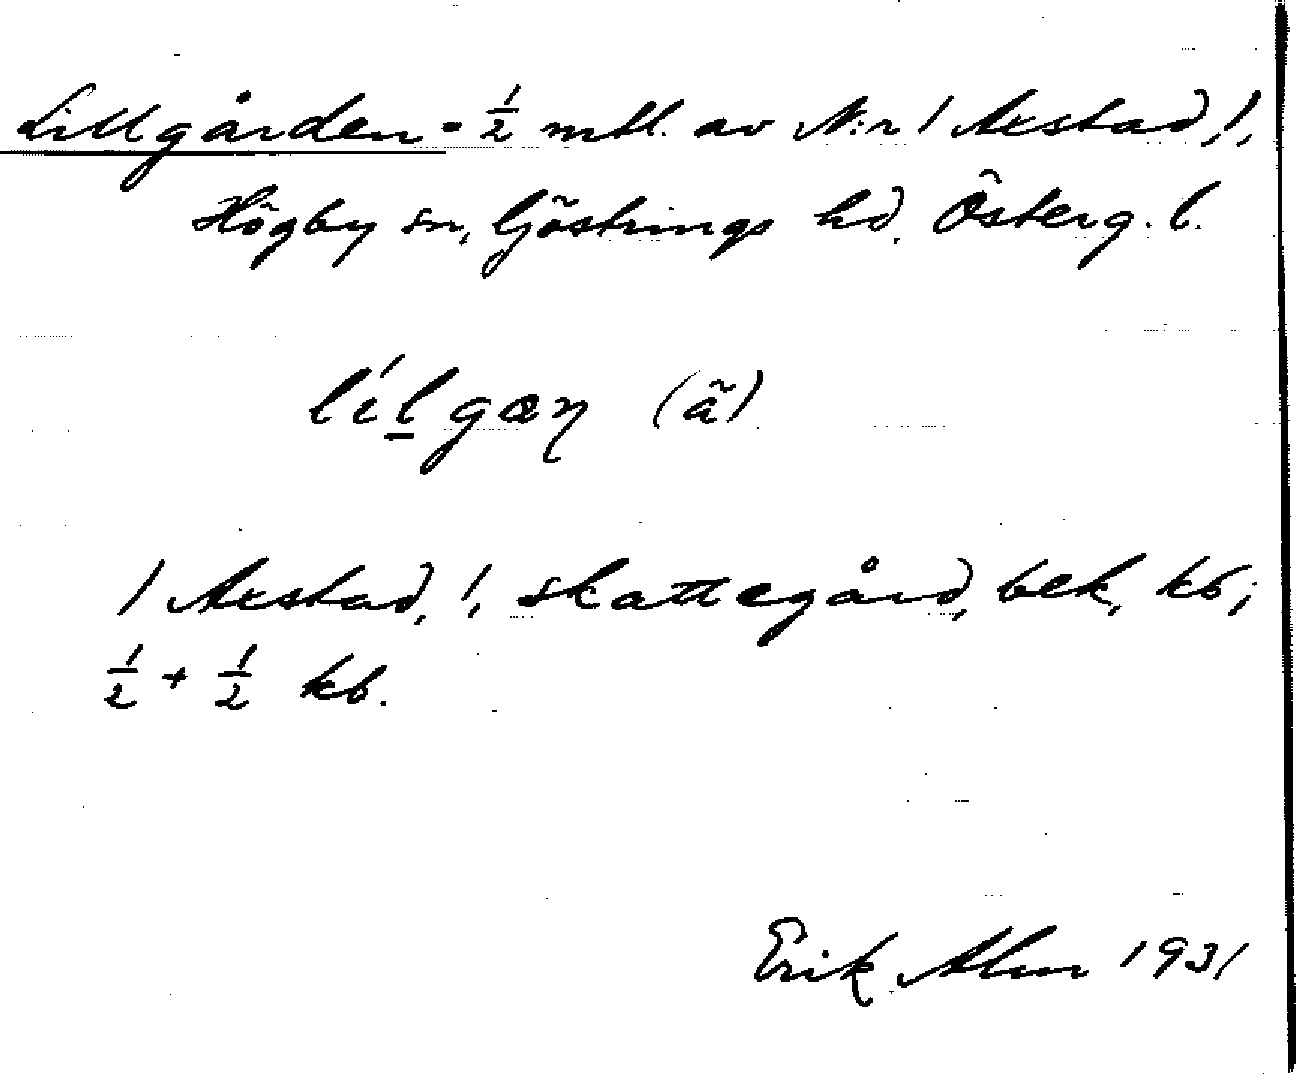 Lillgården = ½ mtl. av N:r 1 Axstad, 1,
Högby sn, Göstrings hd, Österg. l.
líl̲gαη (ã)
1 Axstad, 1, skattegård, bek, kb;
½ + ½ kb.
Erik Alm 1931